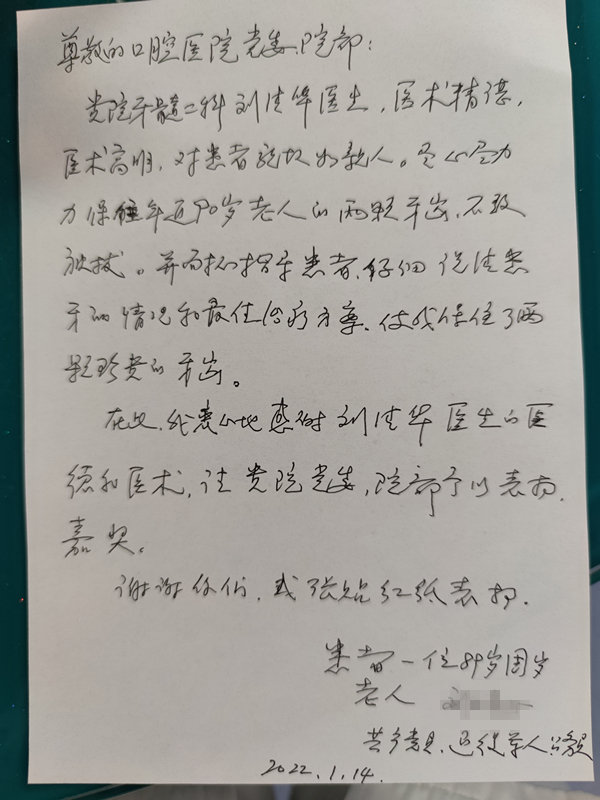 尊敬的口腔医院党委、院部:
贵院牙髓二科刘清华医生,医术精湛,
医术高明,对患者 亲人。尽心尽力
力保住年近90岁老人的两颗牙齿,不致
被拔。并而 患者、仔细说清患
牙的情况和最佳治疗方案、使我保住了两
颗珍贵的牙齿。
在此,我衷心地感谢刘清华医生的医
德和医术,请贵院党委,院部予以表扬,
嘉奖。
谢谢你们,或张贴红纸表扬.
患者一位89岁周岁
老人
共产党员、退役军人
2022.1.14.